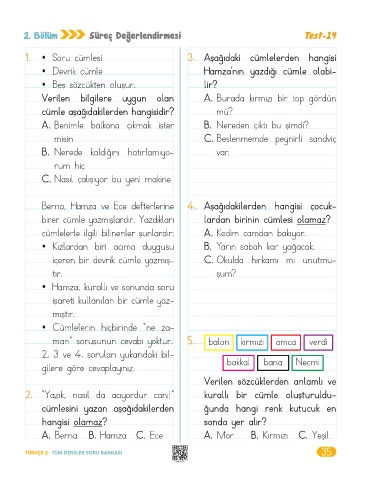 2. Bölüm Süreç Değerlendirmesi Test-14
1. • Soru cümlesi
• Devrik cümle
• Beş sözcükten oluşur.
Verilen bilgilere uygun olan
cümle aşağıdakilerden hangisidir?
A. Benimle balkona çıkmak ister
misin
B. Nerede kaldığını hatırlamıyo-
rum hiç
C. Nasıl çalışıyor bu yeni makine
Berna, Hamza ve Ece defterlerine
birer cümle yazmışlardır. Yazdıkları
cümlelerle ilgili bilinenler şunlardır:
• Kızlardan biri acıma duygusu
içeren bir devrik cümle yazmış-
tır.
• Hamza, kurallı ve sonunda soru
işareti kullanılan bir cümle yaz-
mıştır.
• Cümlelerin hiçbirinde "ne za-
man" sorusunun cevabı yoktur.
2, 3 ve 4. soruları yukarıdaki bil-
gilere göre cevaplayınız.
2. "Yazık, nasıl da acıyordur canı!"
cümlesini yazan aşağıdakilerden
hangisi olamaz?
A. Berna B. Hamza C. Ece
3. Aşağıdaki cümlelerden hangisi
Hamza'nın yazdığı cümle olabi-
lir?
A. Burada kırmızı bir top gördün
mü?
B. Nereden çıktı bu şimdi?
C. Beslenmemde peynirli sandviç
var.
4. Aşağıdakilerden hangisi çocuk-
lardan birinin cümlesi olamaz?
A. Kedim camdan bakıyor.
B. Yarın sabah kar yağacak.
C. Okulda hırkamı mı unutmu-
şum?
5. balon kırmızı amca verdi
bakkal bana Necmi
Verilen sözcüklerden anlamlı ve
kurallı bir cümle oluşturuldu-
ğunda hangi renk kutucuk en
sonda yer alır?
A. Mor B. Kırmızı C. Yeşil
TÜRKÇE 2 TÜM DERSLER SORU BANKASI 35